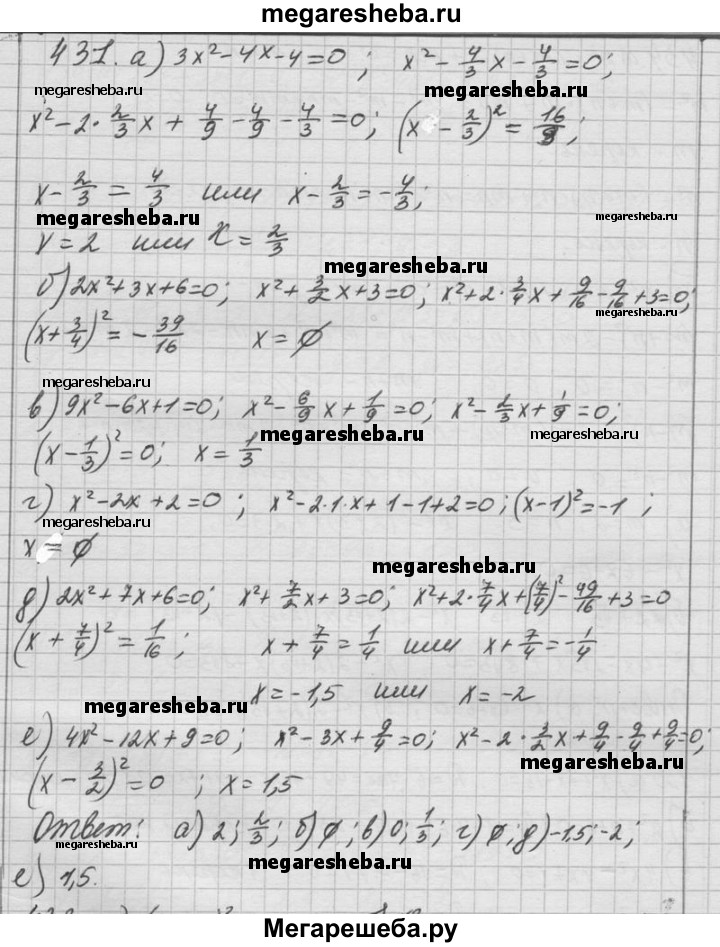 megaresheba.ru
431. а) 3x² - 4x - 4 = 0 ; x² - 4/3 x - 4/3 = 0;
megaresheba.ru megaresheba.ru
x² - 2 · 2/3 x + 4/9 - 4/9 - 4/3 = 0; (x - 2/3)² = 16/9;
x - 2/3 = 4/3 или x - 2/3 = -4/3;
megaresheba.ru megaresheba.ru
x = 2 или x = 2/3
megaresheba.ru
б) 2x² + 3x + 6 = 0; x² + 3/2 x + 3 = 0; x² + 2 · 3/4 x + 9/16 - 9/16 + 3 = 0;
(x + 3/4)² = - 39/16 x = ∅
megaresheba.ru
в) 9x² - 6x + 1 = 0; x² - 6/9 x + 1/9 = 0; x² - 2/3 x + 1/9 = 0;
megaresheba.ru megaresheba.ru
(x - 1/3)² = 0; x = 1/3
г) x² - 2x + 2 = 0 ; x² - 2·1·x + 1 - 1 + 2 = 0; (x-1)² = -1 ;
megaresheba.ru
x = ∅
megaresheba.ru
д) 2x² + 7x + 6 = 0; x² + 7/2 x + 3 = 0; x² + 2 · 7/4 x + (7/4)² - 49/16 + 3 = 0
(x + 7/4)² = 1/16 ; x + 7/4 = 1/4 или x + 7/4 = -1/4
x = -1,5 или x = -2
megaresheba.ru
е) 4x² - 12x + 9 = 0; x² - 3x + 9/4 = 0; x² - 2 · 3/2 x + 9/4 - 9/4 + 9/4 = 0;
megaresheba.ru
(x - 3/2)² = 0 ; x = 1,5
Ответ: а) 2; 2/3; б) ∅; в) 0; 1/3; г) ∅; д) -1,5; -2;
megaresheba.ru megaresheba.ru
е) 1,5.
Мегарешеба.ру